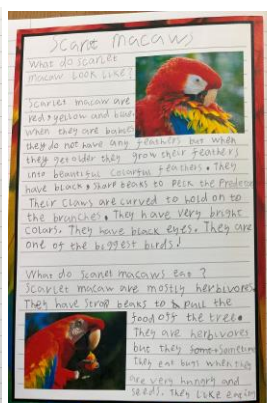 Scarlet macaws
What do scarlet
macaw Look Like?
Scarlet macaw are
red, yellow and blue.
when they are babies
they do not have any feathers but when
they get older they grow their feathers
into beautiful colorful feathers. They
have black, sharp beaks to peck the
Their claws are curved to hold on to
the branches. They have very bright
colors. They have black eyes. They are
one of the biggest birds!
What do scarlet macaws eat?
Scarlet macaw are mostly herbivores
They have beaks to pull the
food off the tree.
They are herbivores
but they
They eat bugs when they
are very hungry and
seeds. They Like eating